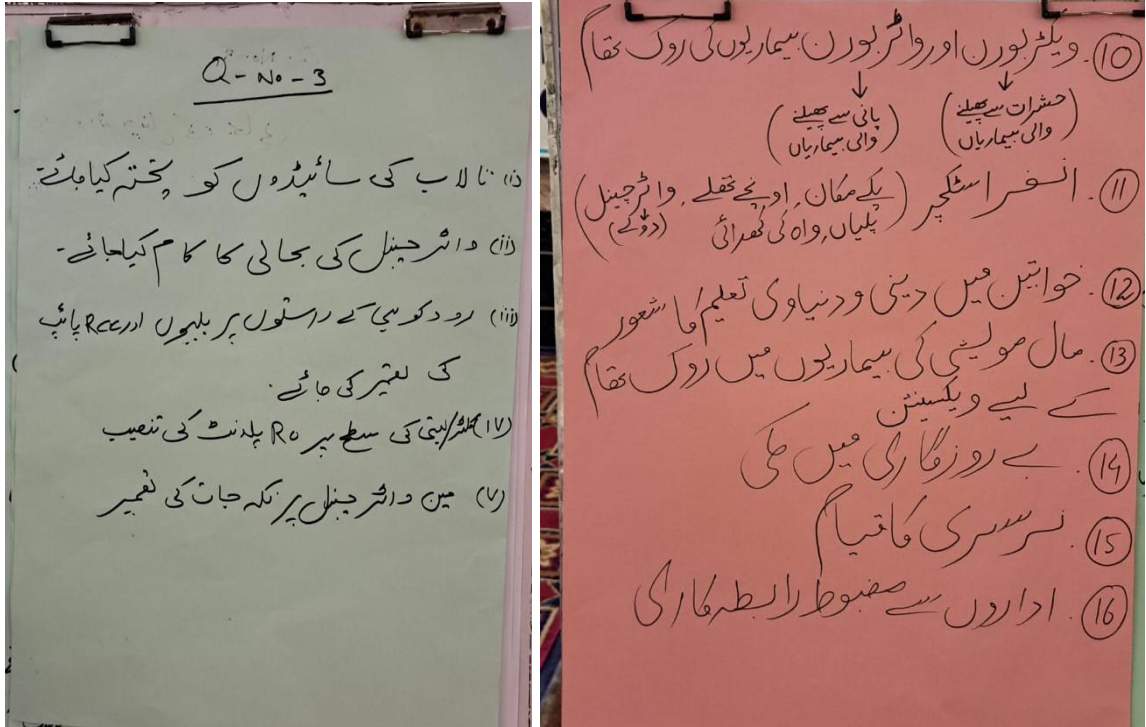 Q-No-3
(i) تالاب کی سائیڈوں کو پختہ کیا جائے۔
(ii) واٹر چینل کی بحالی کا کام کیا جائے۔
(iii) رودکوہی کے راستوں پر پلیوں اور RCC پائپ
کی تعمیر کی جائے۔
(iv) کلسٹر/بستی کی سطح پر RO پلانٹ کی تنصیب
(v) مین واٹر چینل پر نکہ جات کی تعمیر
10. ویکٹر بورن اور واٹر بورن بیماریوں کی روک تھام
(حشرات سے پھیلنے والی بیماریاں)
(پانی سے پھیلنے والی بیماریاں)
11. انسفراسٹکچر (پکے مکان، اونچے تھلے، واٹر چینل
پلیاں، واہ کی کھدائی)
12. خواتین میں دینی و دنیاوی تعلیم کا شعور
13. مال مویشی کی بیماریوں میں روک تھام
کے لیے ویکسینشن
14. بے روزگاری میں کمی
15. نرسری کا قیام
16. اداروں سے مضبوط رابطہ کاری